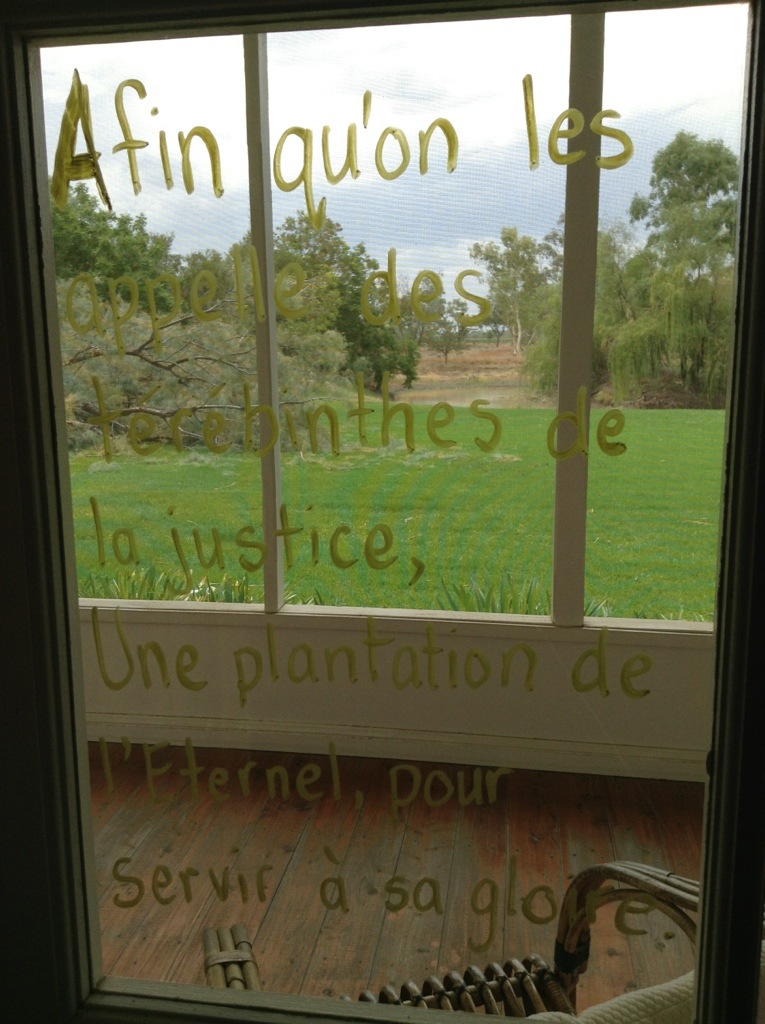 Afin qu'on les
appelle des
térébinthes de
la justice,
Une plantation de
l'Eternel, pour
servir à sa gloire